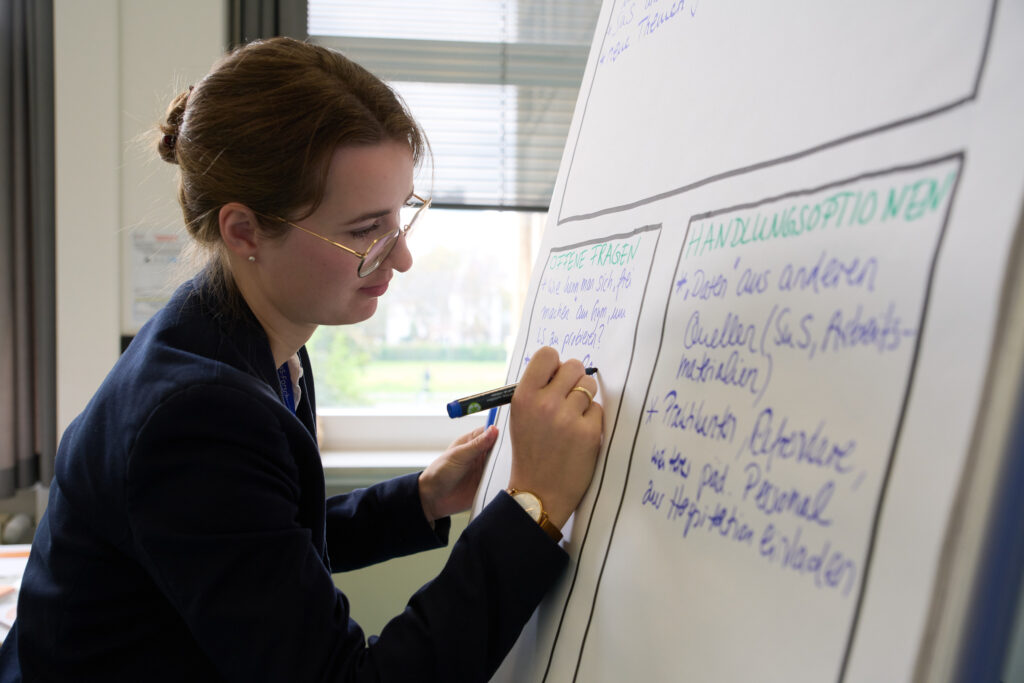 SuS
* neue Themen
OFFENE FRAGEN
* Wie kann man sich „frei
machen" am Gym, um
LS zu probieren?
HANDLUNGSOPTIONEN
* „Daten" aus anderen
Quellen (SuS, Arbeits-
materialien)
* Praktikanten, Referendare,
weiteres päd. Personal
zur Hospitation einladen